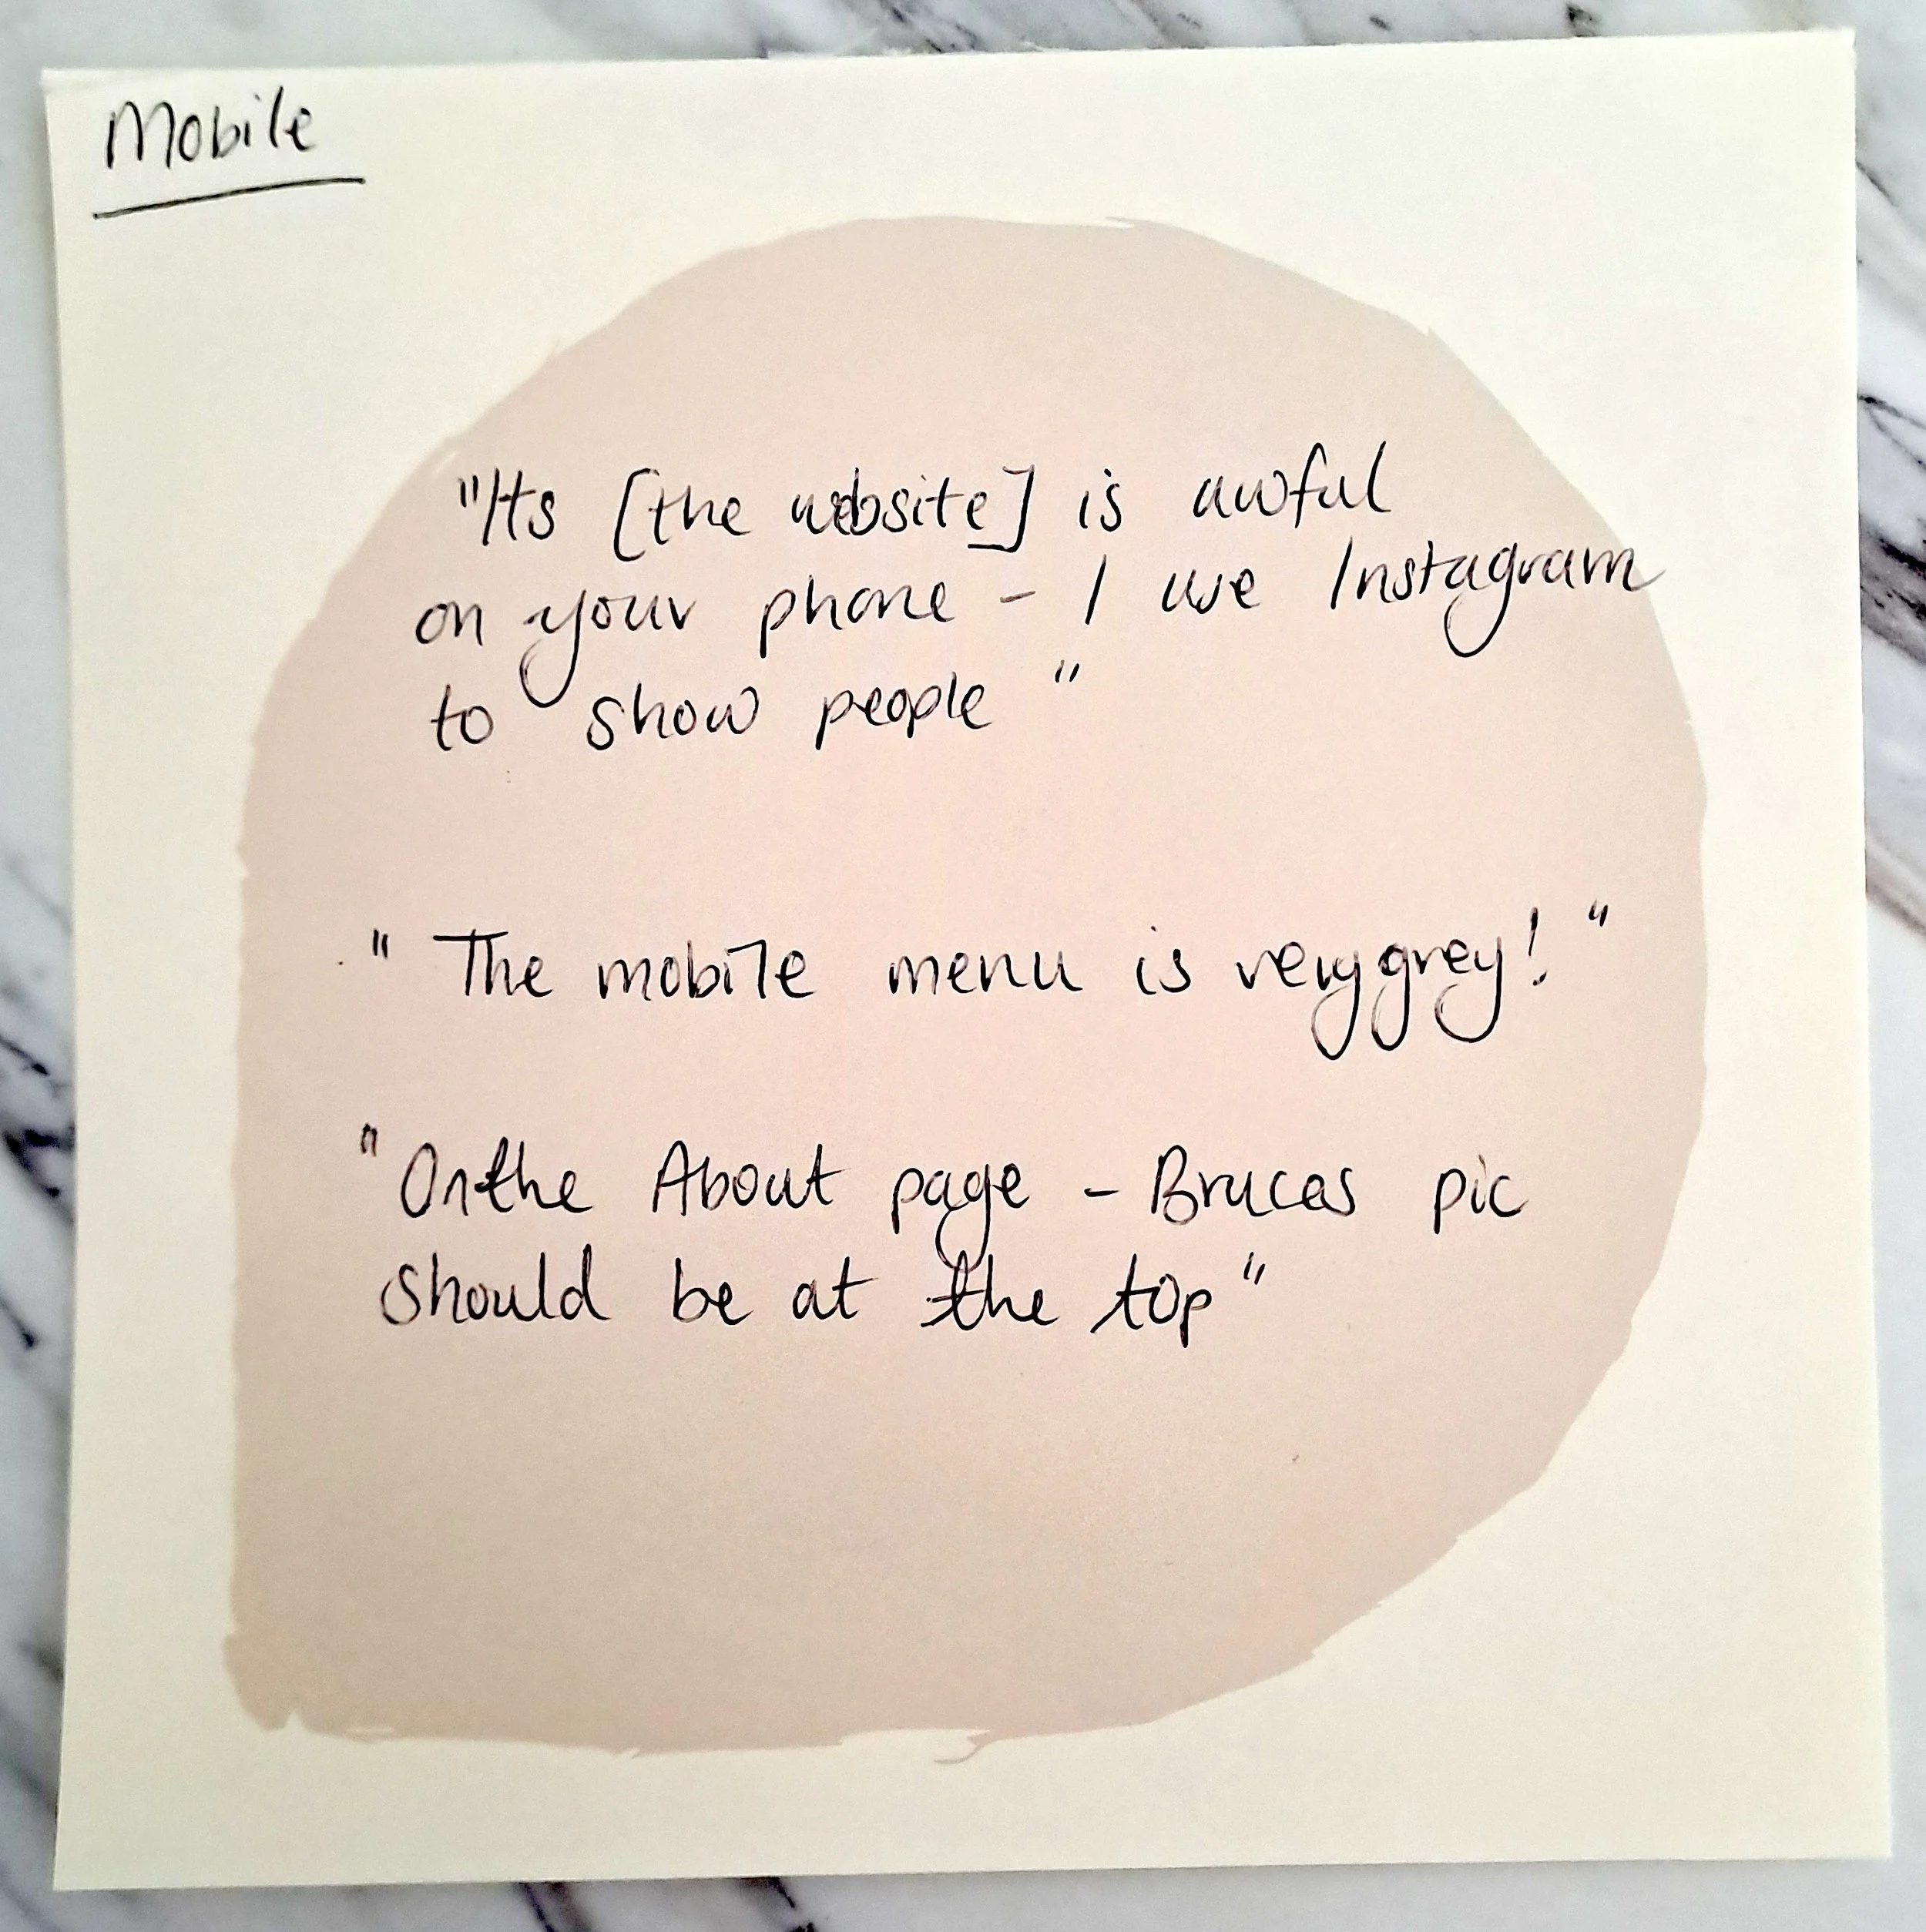 Mobile
"Its [the website] is awful
on your phone - I use Instagram
to show people"
"The mobile menu is very grey!"
"On the About page - Bruces pic
should be at the top"